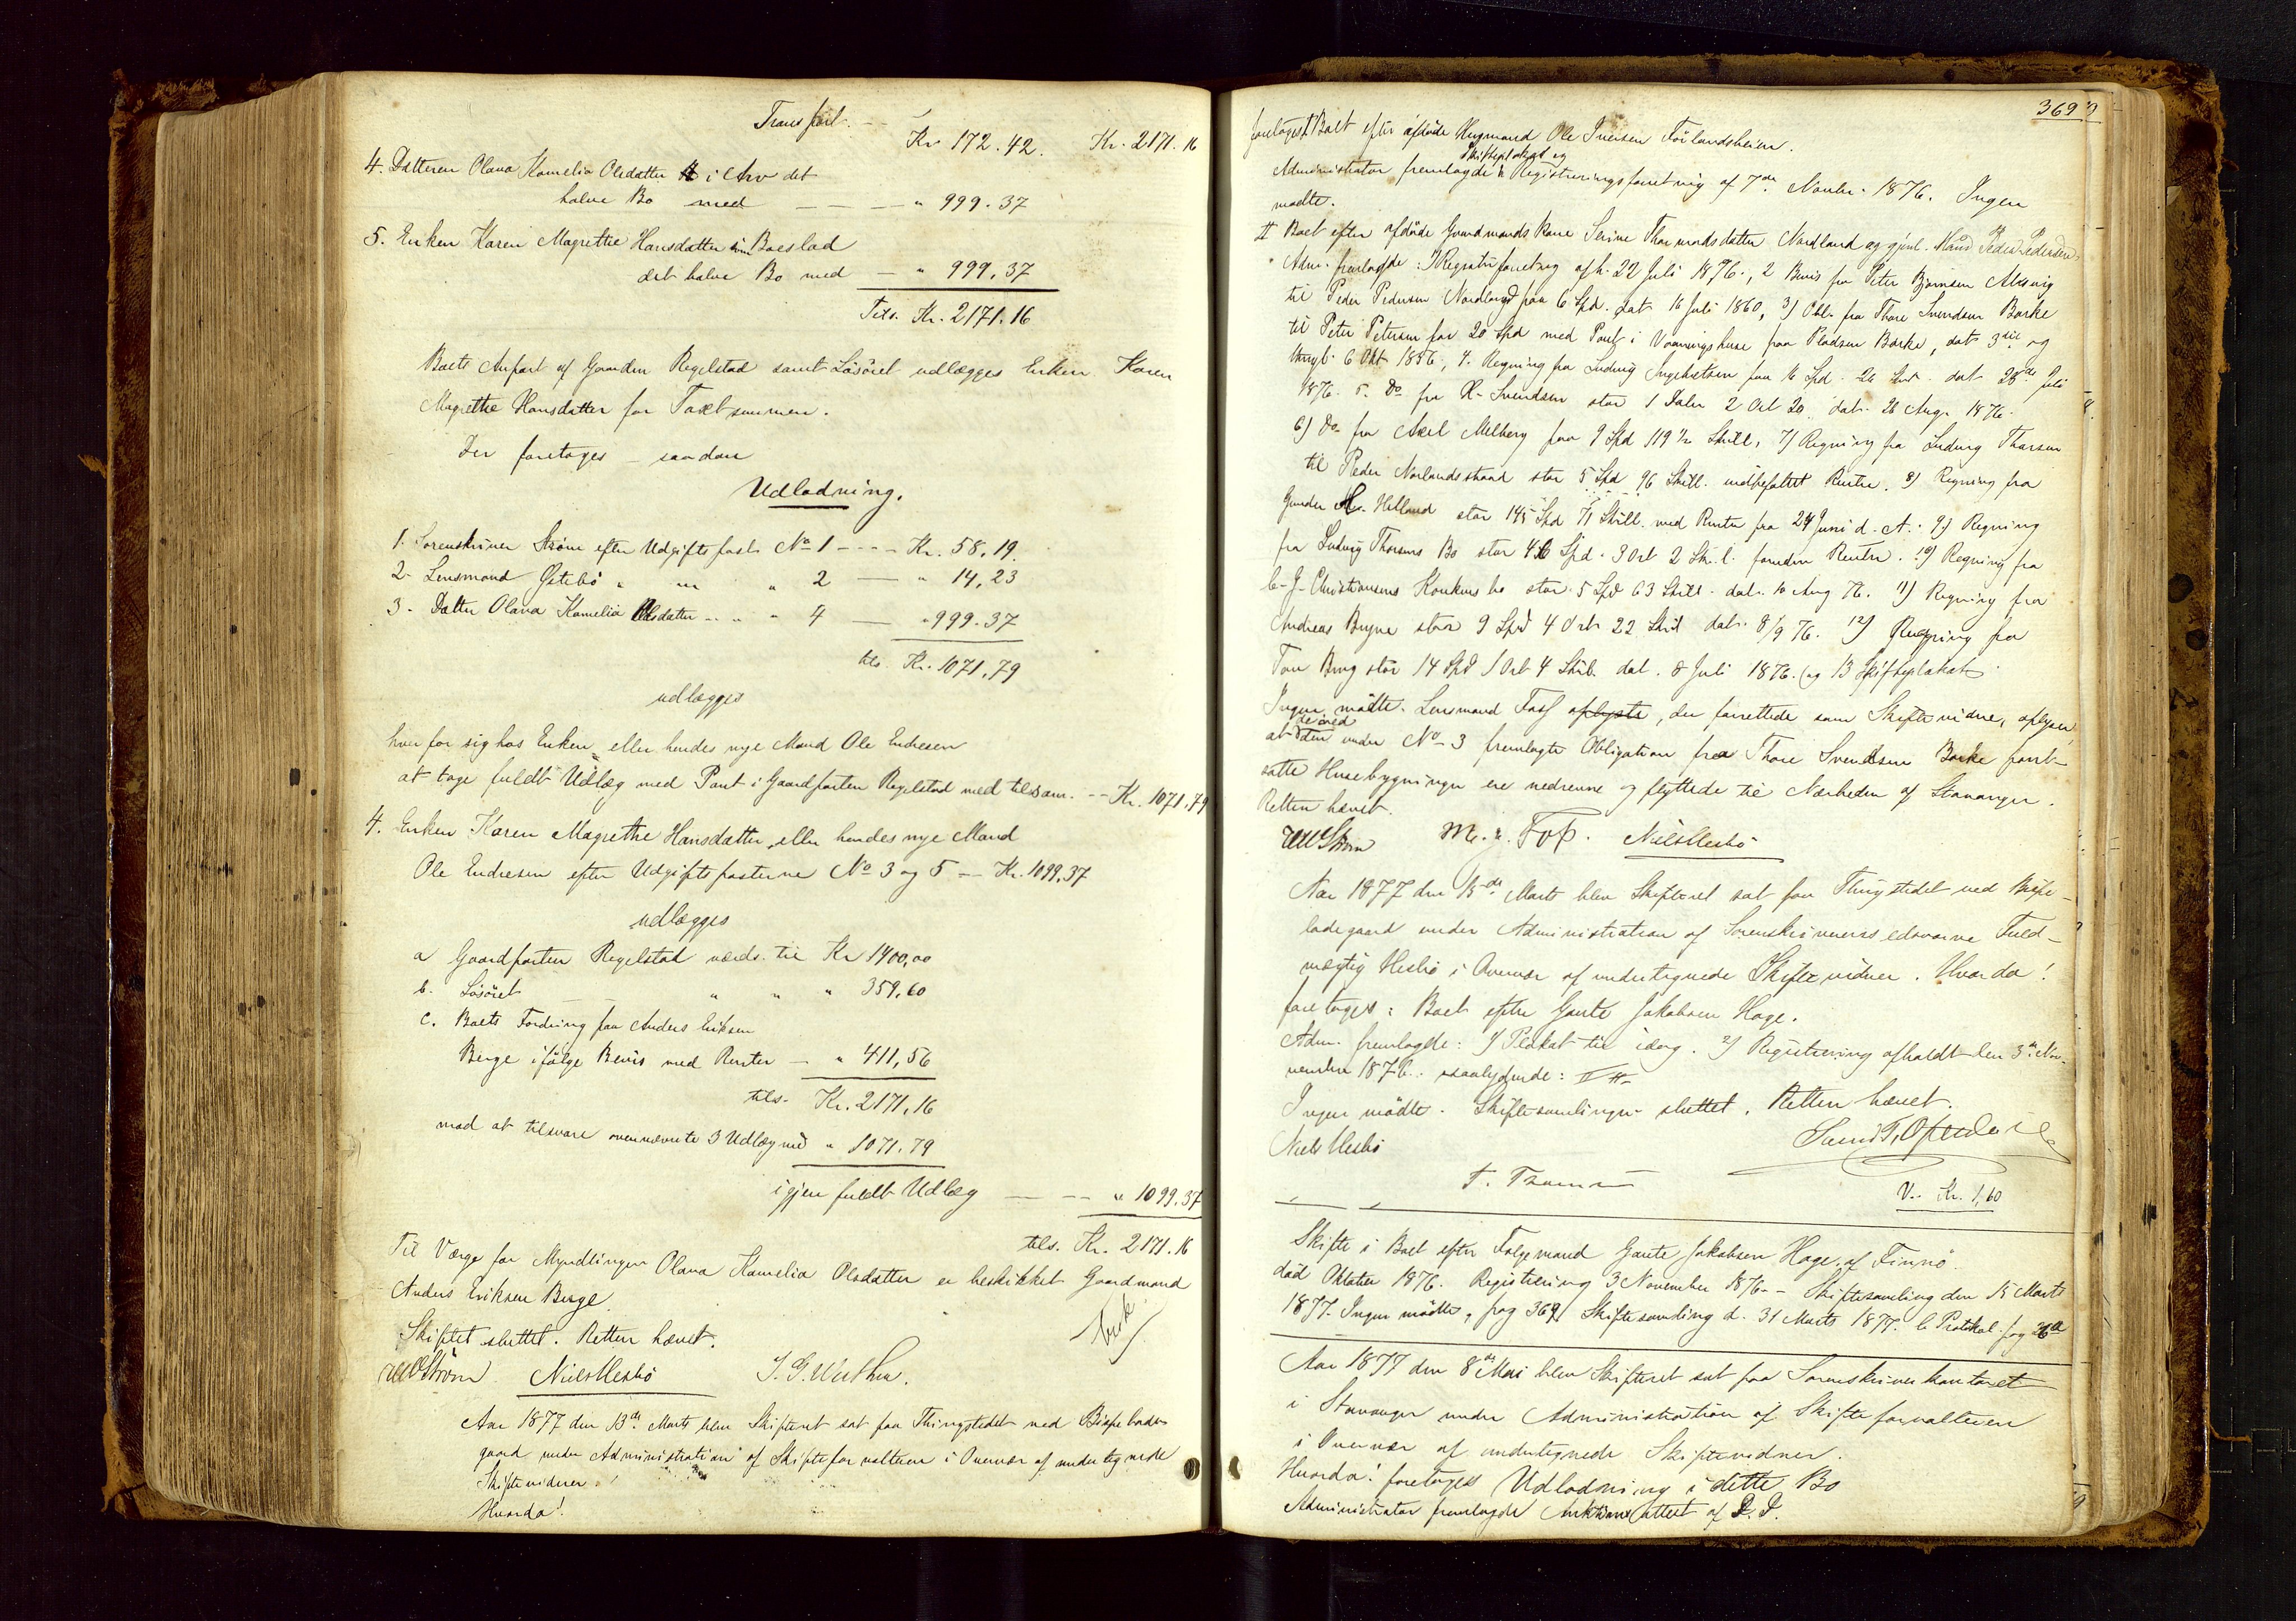 Transport.
Kr 172.42. Kr. 2171.16
4. Datteren Olava Kamelia Olsdatter i Arv det
halve Bo med — — — " 999.37
5. Enken Karen Magrethe Hansdatter sin Boeslod
det halve Bo med — " 999.37
Tils. Kr. 2171.16
Boets Anpart af Gaarden Regelstad samt Løsøret udlægges Enken Karen
Magrethe Hansdatter for Taxtsummen.
Der foretages saadan
Udlodning.
1. Sorenskriver Strøm efter Udgiftspost No 1 - - - Kr. 58.19
2. Lensmand Østebø " " " 2 — " 14,23
3. Datter Olava Kamelia Olsdatter " " " 4 — " 999.37
tils. Kr. 1071,79
udlægges
hver for sig hos Enken eller hendes nye Mand Ole Endresen
at tage fuldt Udlæg med Pant i Gaardparten Regelstad med tilsam. -- Kr. 1071.79
4. Enken Karen Magrethe Hansdatter, eller hendes nye Mand
Ole Endresen efter Udgiftsposterne No 3 og 5 -- Kr. 1099.37
udlægges
a Gaardparten Regelstad værds. til Kr 1400,00
b. Løsøret — — " " " 359,60
c. Boets Fordring paa Anders Eriksen
Berge ifølge Bevis med Renter — " 411,56
tils. Kr. 2171,16
mod at tilsvare ovennævnte 3 Udlæg med " 1071.79
igjen fuldt Udlæg — — — " 1099.37
tils. Kr. 2171.16
Til Værge for Myndlingen Olava Kamelia Olsdatter er beskikket Gaardmand
Anders Eriksen Berge.
Skiftet sluttet. Retten hævet.
Strøm Niels Hesbø
Aar 1877 den 13de Marts blev Skifteret sat paa Thingstedet ved Bispelade-
gaard under Administration af Skifteforvalteren i Overvær af undertegnede
Skiftevidner.
Hvorda!
369
foretoges I Boet efter afdøde Husmand Ole Iversen Førlandsheien.
Administrator fremlagde Skifteplakat og Registreringsforretning af 7de Novbr. 1876. Ingen
mødte.
II Boet efter afdøde Gaardmands Kone Serine Thormodsdatter Nordland og gjenl. Mand Peder Pedersen.
Adm. fremlagde: 1) Registrforretng afh. 22 Juli 1876., 2 Bevis fra Peter Bjørnsen
til Peder Pedersen Nordland paa 6 Spd. dat 16 Juli 1860, 3) Obl. fra Thore Svendsen Borke
til Peter Petersen for 20 Spd med Pant i Vaaningshuse paa Pladsen Borke, dat 3die og
thingl. 6 Okt 1856, 4. Regning fra Ludvig Ingebretsen paa 16 Spd. 26 dat 28de Juli
1876. 5. Do fra R. Svendsen stor 1 Daler 2 Ort 20 dat. 26 Aug. 1876.
6) Do fra Axel Melberg paa 9 Spd 119 1/2 Skill. 7) Regning fra Ludvig Thorsen
til Peder Norlandsstrand stor 5 Spd 96 Skill. indbefattet Renter. 8) Regning fra
Gunder H. Helland stor 145 Spd 71 Skill. med Renter fra 24 Juni d. A. 9) Regning
fra Ludvig Thorsens Bo stor 46 Spd. 3 Ort 2 Sk. foruden Renter. 10) Regning fra
C. J. Christiansens Konkurs bo stor 5 Spd 63 Skill. dat. 10 Aug 76. 11) Regning fra
Andreas Bryne stor 9 Spd 4 Ort 22 Skil dat. 8/9 76. 12) Regning fra
Tou Brug stor 14 Spd 1 Ort 4 Skil. dat. 8 Juli 1876. og 13 Skifteplakat.
Ingen mødte. Lensmand Foss oplyste, der forrettede som Skiftevidne, oplyser,
at de ved den under No 3 fremlagte Obligation fra Thore Svendsen Borke pant-
satte Husebygninger ere nedrevne og flyttede til Nærheden af Stavanger.
Retten hævet.
Strøm Foss. Niels Hesbø
Aar 1877 den 15de Marts blev Skifteret sat paa Thingstedet ved Bispe-
ladegaard under Administration af Sorenskriverens edsvorne Fuld-
mægtig Hesbø i Overvær af undertegnede Skiftevidner. Hvorda!
foretoges: Boet efter Gaute Jakobsen Hage.
Adm. fremlagde: 1) Plakat til idag. 2) Registrering afholdt den 3de No-
vember 1876. saalydende:
Ingen mødte. Skiftesamlingen sluttet. Retten hævet.
Niels Hesbø
V. Kr. 1,60
Skifte i Boet efter Følgemand Gaute Jakobsen Hage, af Finnø.
død Oktober 1876. Registrering 3 November 1876. - Skiftesamling den 15 Marts
1877. Ingen mødte, pag 369. Skiftesamling d. 31 Marts 1877. Protokol pag
Aar 1877 den 8de Mai blev Skifteret sat paa Sorenskriverkontoret
i Stavanger under Administration af Skifteforvalteren
i Overvær af undertegnede Skiftevidner.
Hvorda! foretoges Udlodning i dette Bo
Administrator fremlagde Auktions attest af D. D.